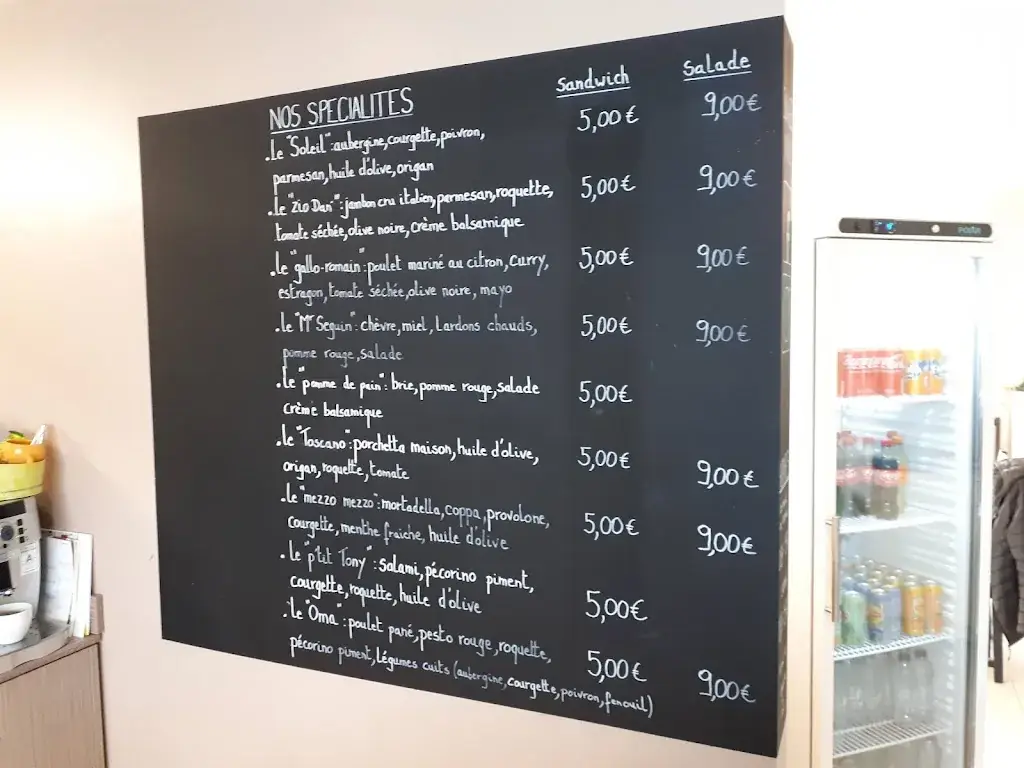 Sandwich Salade
NOS SPECIALITES
.Le "Soleil": aubergine, courgette, poivron, 5,00€ 9,00€
parmesan, huile d'olive, origan
.Le "Zio Dan": jambon cru italien, parmesan, roquette, 5,00€ 9,00€
tomate séchée, olive noire, crème balsamique
.Le "gallo-romain": poulet mariné au citron, curry, 5,00€ 9,00€
estragon, tomate séchée, olive noire, mayo
.le "Mr Seguin": chèvre, miel, Lardons chauds, 5,00€ 9,00€
pomme rouge, salade
.Le "pomme de pain": brie, pomme rouge, salade 5,00€
crème balsamique
.le "Toscano": porchetta maison, huile d'olive, 5,00€ 9,00€
origan, roquette, tomate
.Le "mezzo mezzo": mortadella, coppa, provolone, 5,00€ 9,00€
courgette, menthe fraiche, huile d'olive
.le "p'tit Tony": salami, pécorino piment, 5,00€
courgette, roquette, huile d'olive
.le "Oma": poulet pané, pesto rouge, roquette, 5,00€ 9,00€
pécorino piment, légumes cuits (aubergine, courgette, poivron, fenouil)